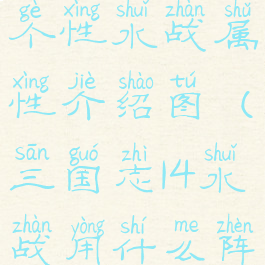 gè xìng shuǐ zhàn shǔ
个性水战属
xìng jiè shào tú
性介绍图（
sān guó zhì shuǐ
三国志14水
zhàn yòng shí me zhèn
战用什么阵